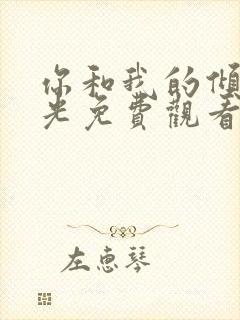 你和我的傾
光免費觀看
左惠琴